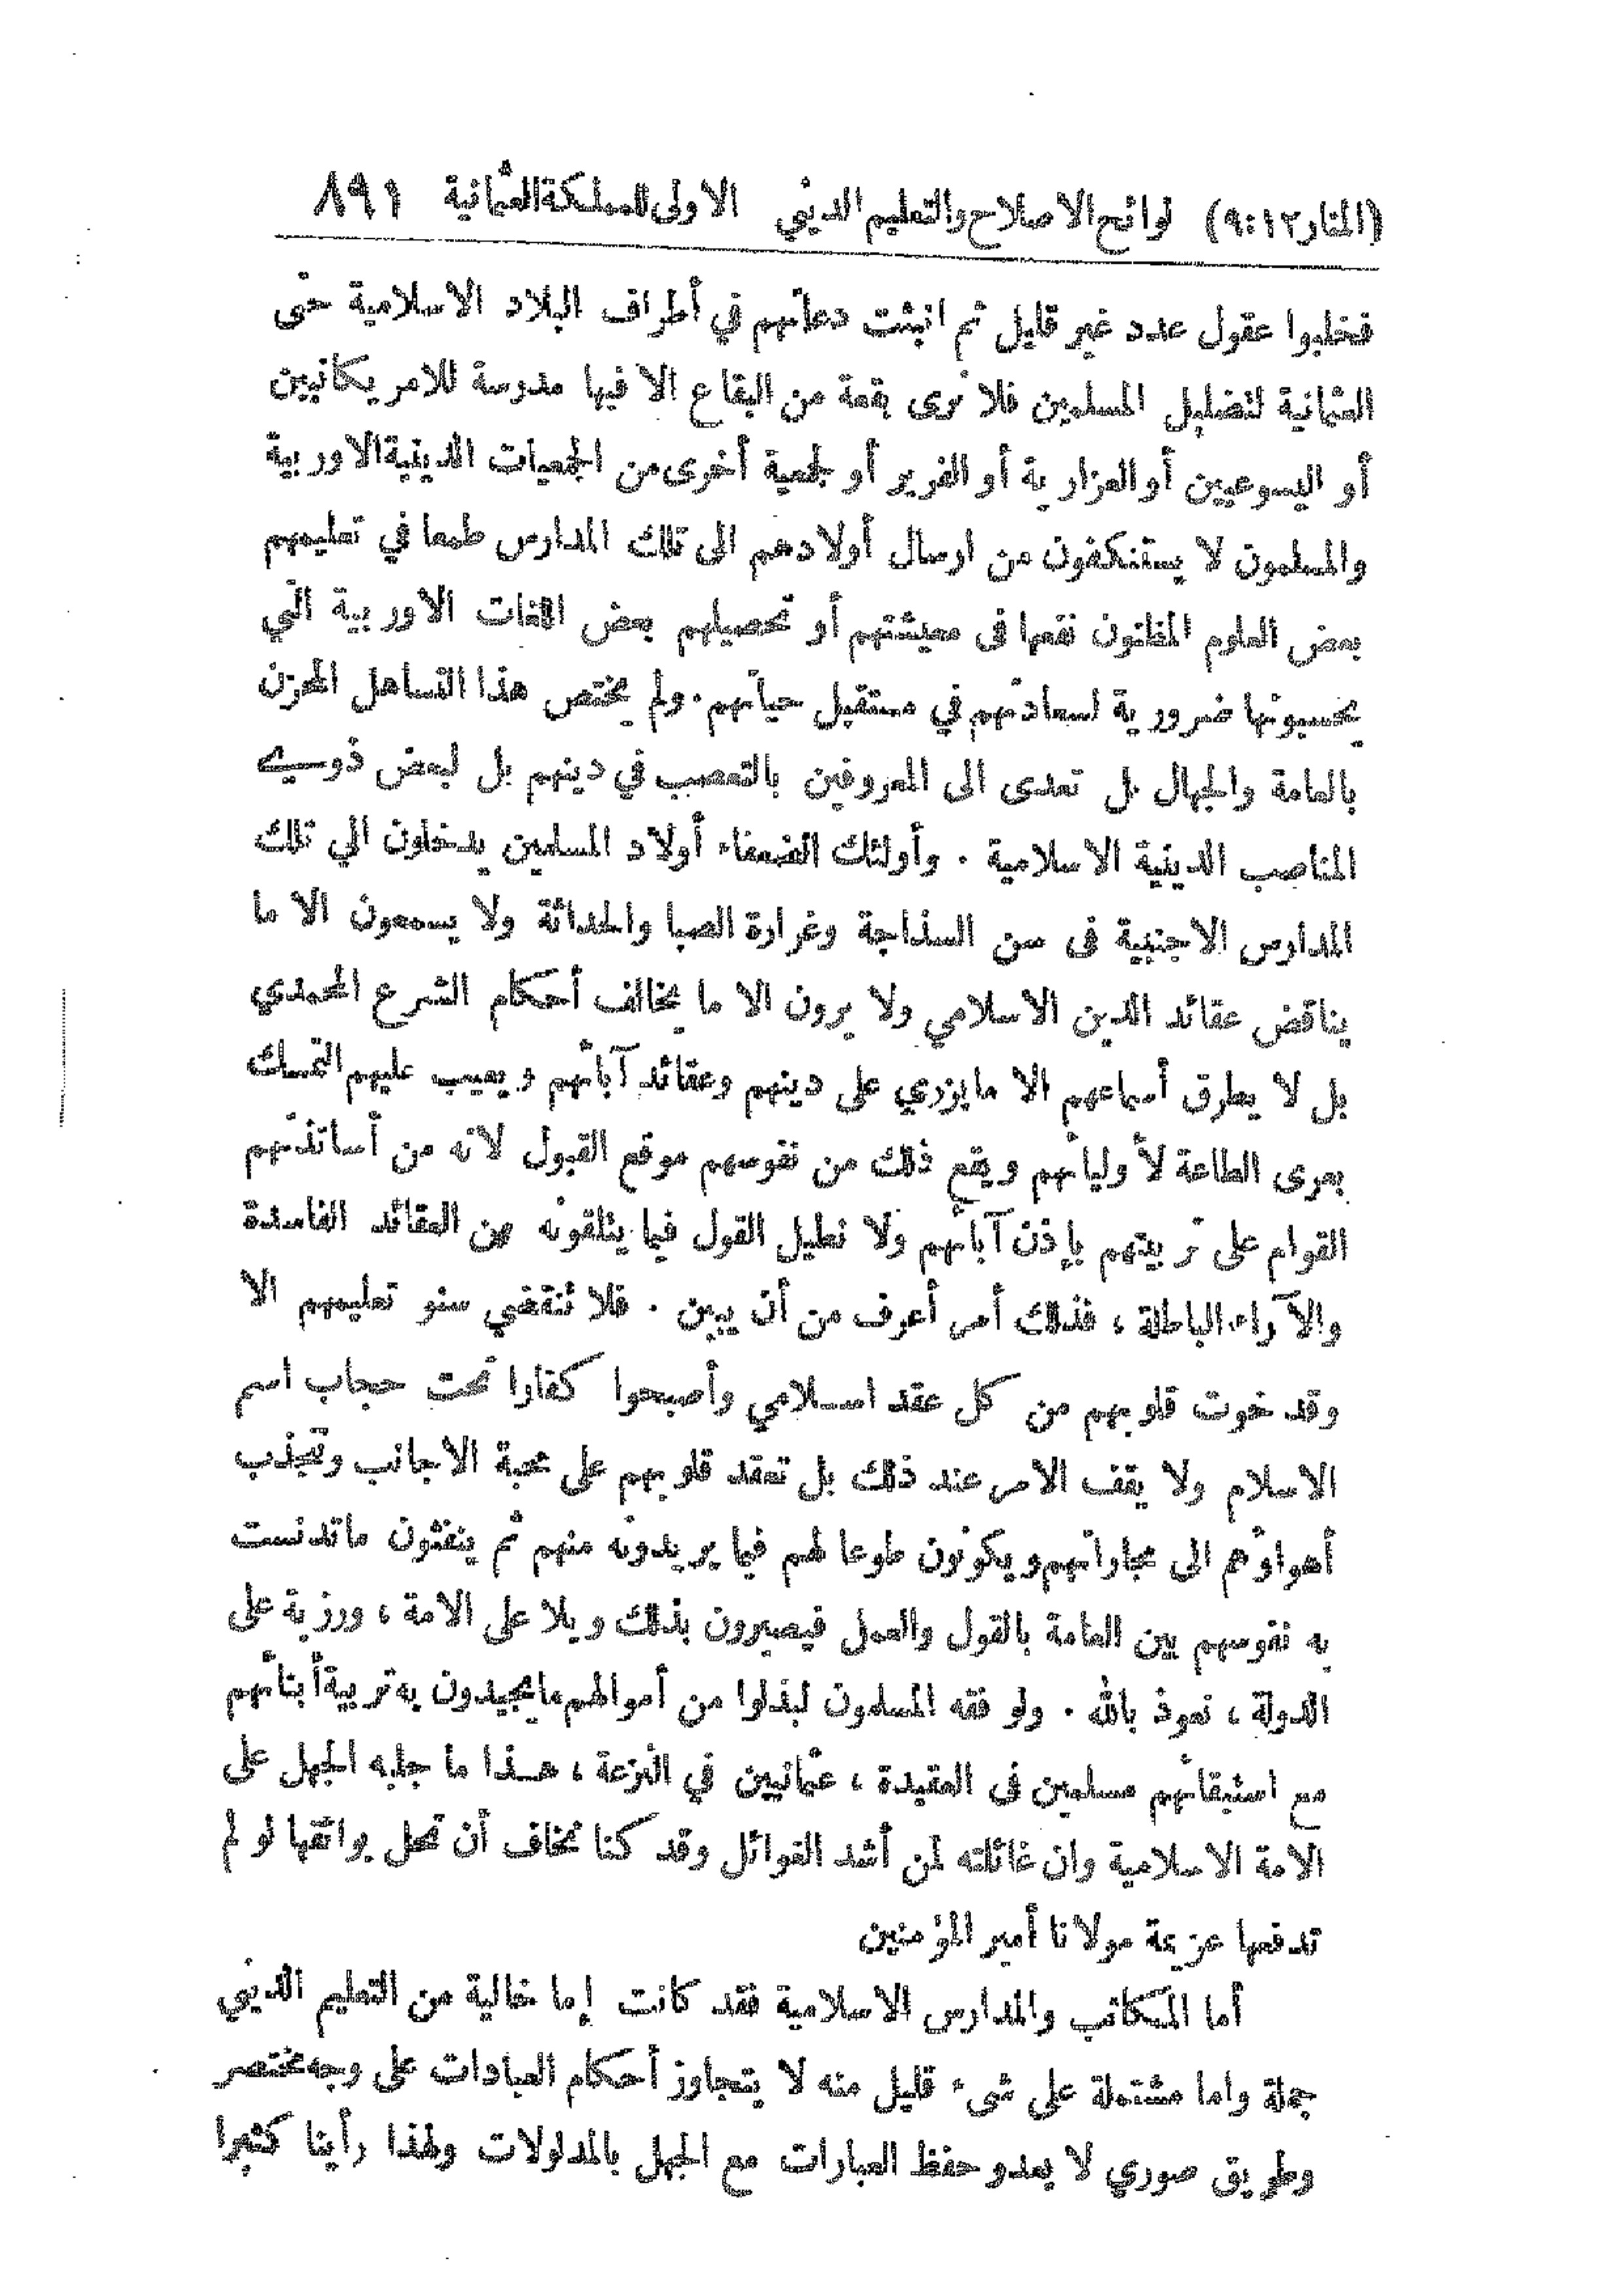 (المنار ٩:١٢) لوائح الاصلاح والتعليم الديني الاولى للمملكة العثمانية ٨٩١
فخلبوا عقول عدد غير قليل ثم انبثت دعاتهم في أطراف البلاد الاسلامية حتى
العثمانية لتضليل المسلمين فلا نرى بقعة من البقاع الا فيها مدرسة للامريكانيين
أو اليسوعيين أو العزارية أو الفرير أو لجمعية أخرى من الجمعيات الدينية الاوربية
والمسلمون لا يستنكفون من ارسال أولادهم الى تلك المدارس طمعا في تعليمهم
بعض العلوم المظنون نفعها في معيشتهم أو تحصيلهم بعض اللغات الاوربية التي
يحسبونها ضرورية لسعادتهم في مستقبل حياتهم. ولم يختص هذا التساهل المحزن
بالعامة والجهال بل تعدى الى المعروفين بالتعصب في دينهم بل لبعض ذوي
المناصب الدينية الاسلامية . وأولئك الضعفاء أولاد المسلمين يدخلون الي تلك
المدارس الاجنبية في سن السذاجة وغرارة الصبا والحداثة ولا يسمعون الا ما
يناقض عقائد الدين الاسلامي ولا يرون الا ما يخالف أحكام الشرع المحمدي
بل لا يطرق أسماعهم الا ما يزري على دينهم وعقائد آبائهم ويعيب عليهم التمسك
بعرى الطاعة لأوليائهم ويقع ذلك من نفوسهم موقع القبول لانه من أساتذتهم
القوام على تربيتهم بإذن آبائهم ولا نطيل القول فيما يتلقونه من العقائد الفاسدة
والآراء الباطلة ، فذلك أمر أعرف من أن يبين . فلا تنقضي سنو تعليمهم الا
وقد خوت قلوبهم من كل عقد اسلامي وأصبحوا كفارا تحت حجاب اسم
الاسلام ولا يقف الامر عند ذلك بل تعقد قلوبهم على محبة الاجانب وتنجذب
أهواؤهم الى مجاراتهم ويكونون طوعا لهم فيما يريدونه منهم ثم ينفثون ما تدنست
به نفوسهم بين العامة بالقول والعمل فيصيرون بذلك ويلا على الامة ، ورزية على
الدولة ، نعوذ بالله . ولو فقه المسلمون لبذلوا من أموالهم ما يجيدون به تربية أبنائهم
مع استبقائهم مسلمين في العقيدة ، عثمانيين في النزعة ، هذا ما جلبه الجهل على
الامة الاسلامية وان غائلته لمن أشد الغوائل وقد كنا نخاف أن تحل بوائقها لو لم
تدفعها عزيمة مولانا أمير المؤمنين
أما المكاتب والمدارس الاسلامية فقد كانت إما خالية من التعليم الديني
جملة واما مشتملة على شيء قليل منه لا يتجاوز أحكام العبادات على وجه مختصر
وطريق صوري لا يعدو حفظ العبارات مع الجهل بالمدلولات ولهذا رأينا كثيرا